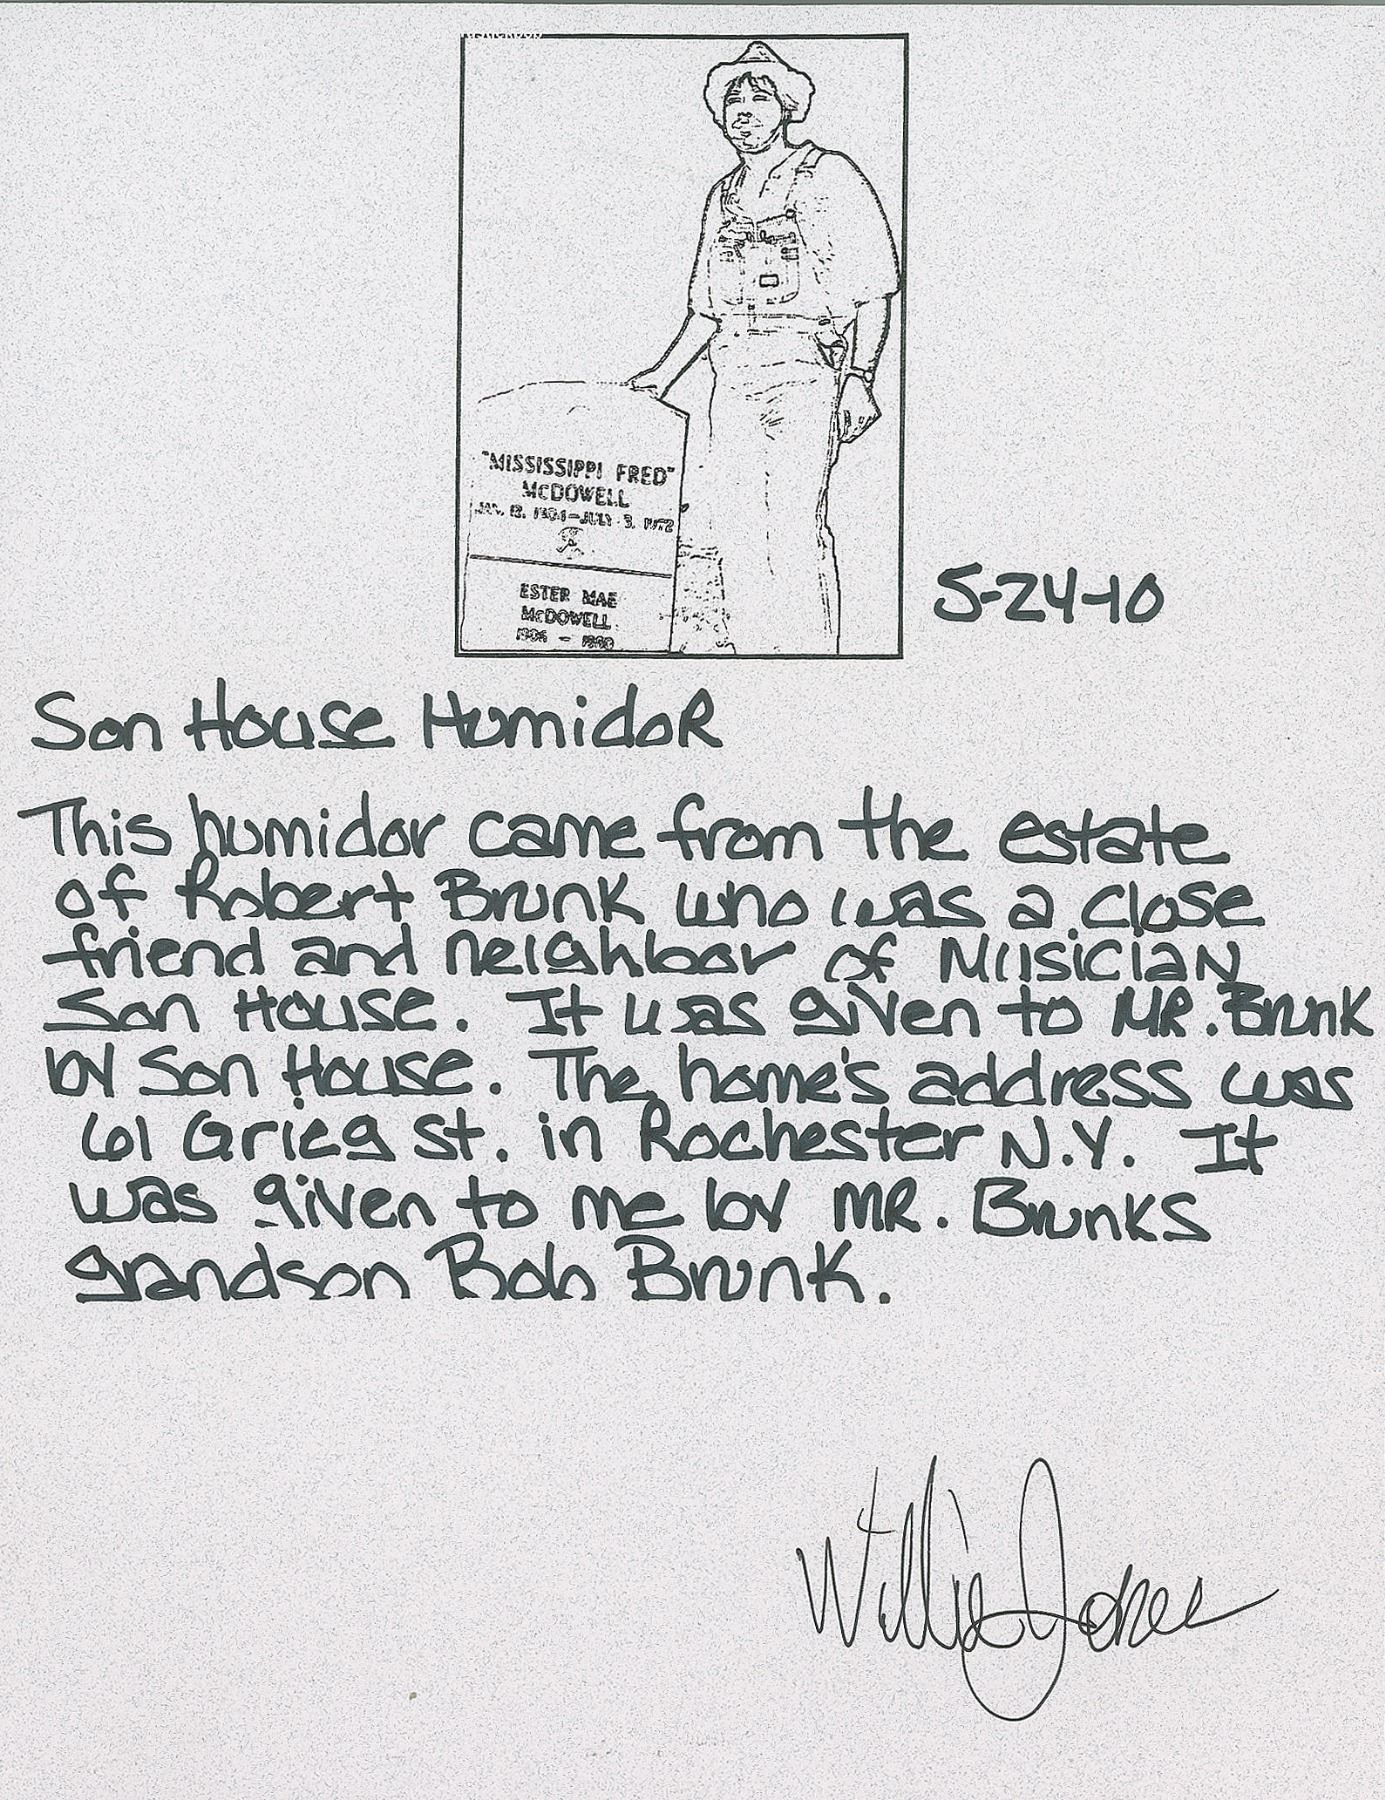 "MISSISSIPPI FRED"
MCDOWELL
JAN. 12, 1904-JULY 3, 1972
ESTER MAE
MCDOWELL
1906 - 1980
5-24-10
Son House Humidor
This humidor came from the estate
of Robert Brunk who was a close
friend and neighbor of Musician
Son House. It was given to MR. Brunk
by Son House. The home's address was
61 Grieg St. in Rochester N.Y. It
was given to me by MR. Brunks
grandson Bob Brunk.
Willie Jones